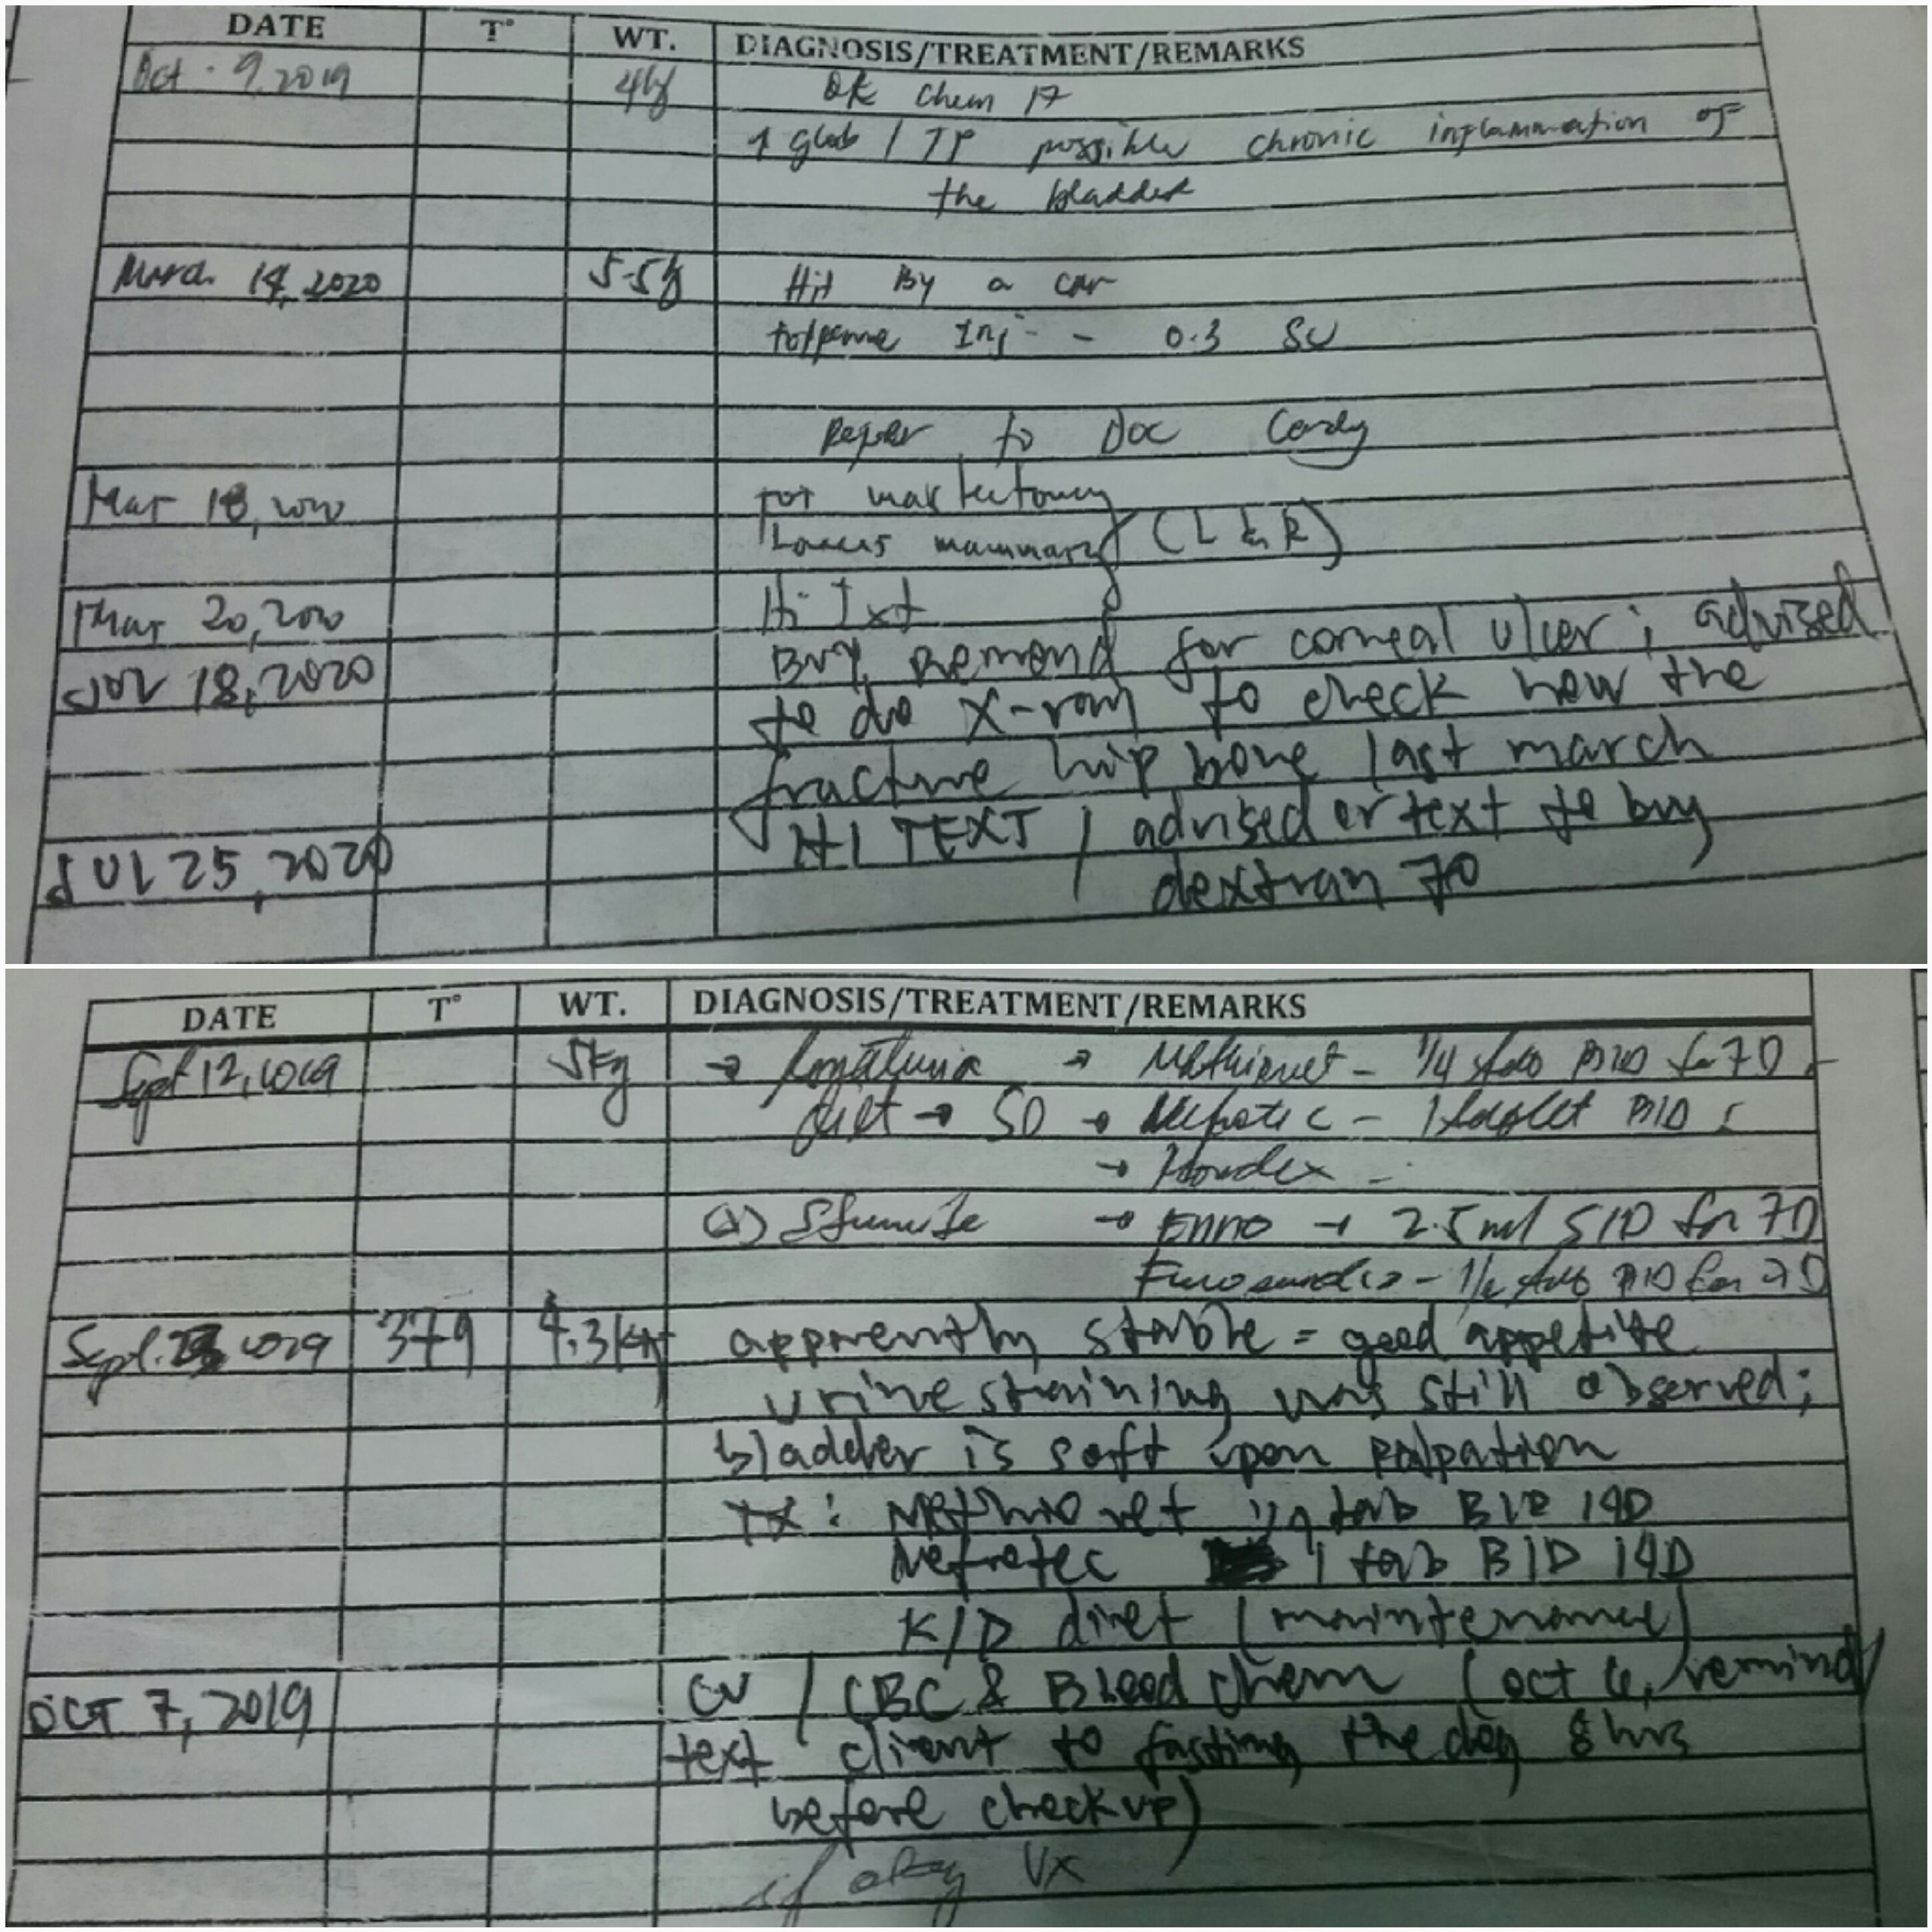 DATE T° WT. DIAGNOSIS/TREATMENT/REMARKS
Oct. 9, 2019 4kg Chem 17
↑ glob / TP possible chronic inflammation of
the bladder
March 14, 2020 5.5kg Hit By a car
Inj - 0.3 SC
Refer to Doc
Mar 18, 2020 for mastectomy
mammary (L & R)
Mar 20, 2020 Hi Txt
JUL 18, 2020 for corneal ulcer; advised
to do X-ray to check how the
fracture hip bone last march
JUL 25, 2020 HI TEXT / advised or text to buy
dextran 70
DATE T° WT. DIAGNOSIS/TREATMENT/REMARKS
Sept 12, 2019 5kg → → Methiovet - 1/4 tab BID for 7D
diet → SD → - 1 tablet BID
→
→ Enro → 2.5 ml SID for 7D
BID for 7D
Sept. 2019 379 4.3kg apparently stable = good appetite
urine staining was still observed;
bladder is soft upon palpation
TX: Methiovet 1/4 tab BID 14D
Nefrotec 1 tab BID 14D
K/D diet (maintenance)
OCT 7, 2019 CU / CBC & Blood Chem (oct 6, remind/
text client to fasting the dog 8 hrs
before check up)
if okay VX